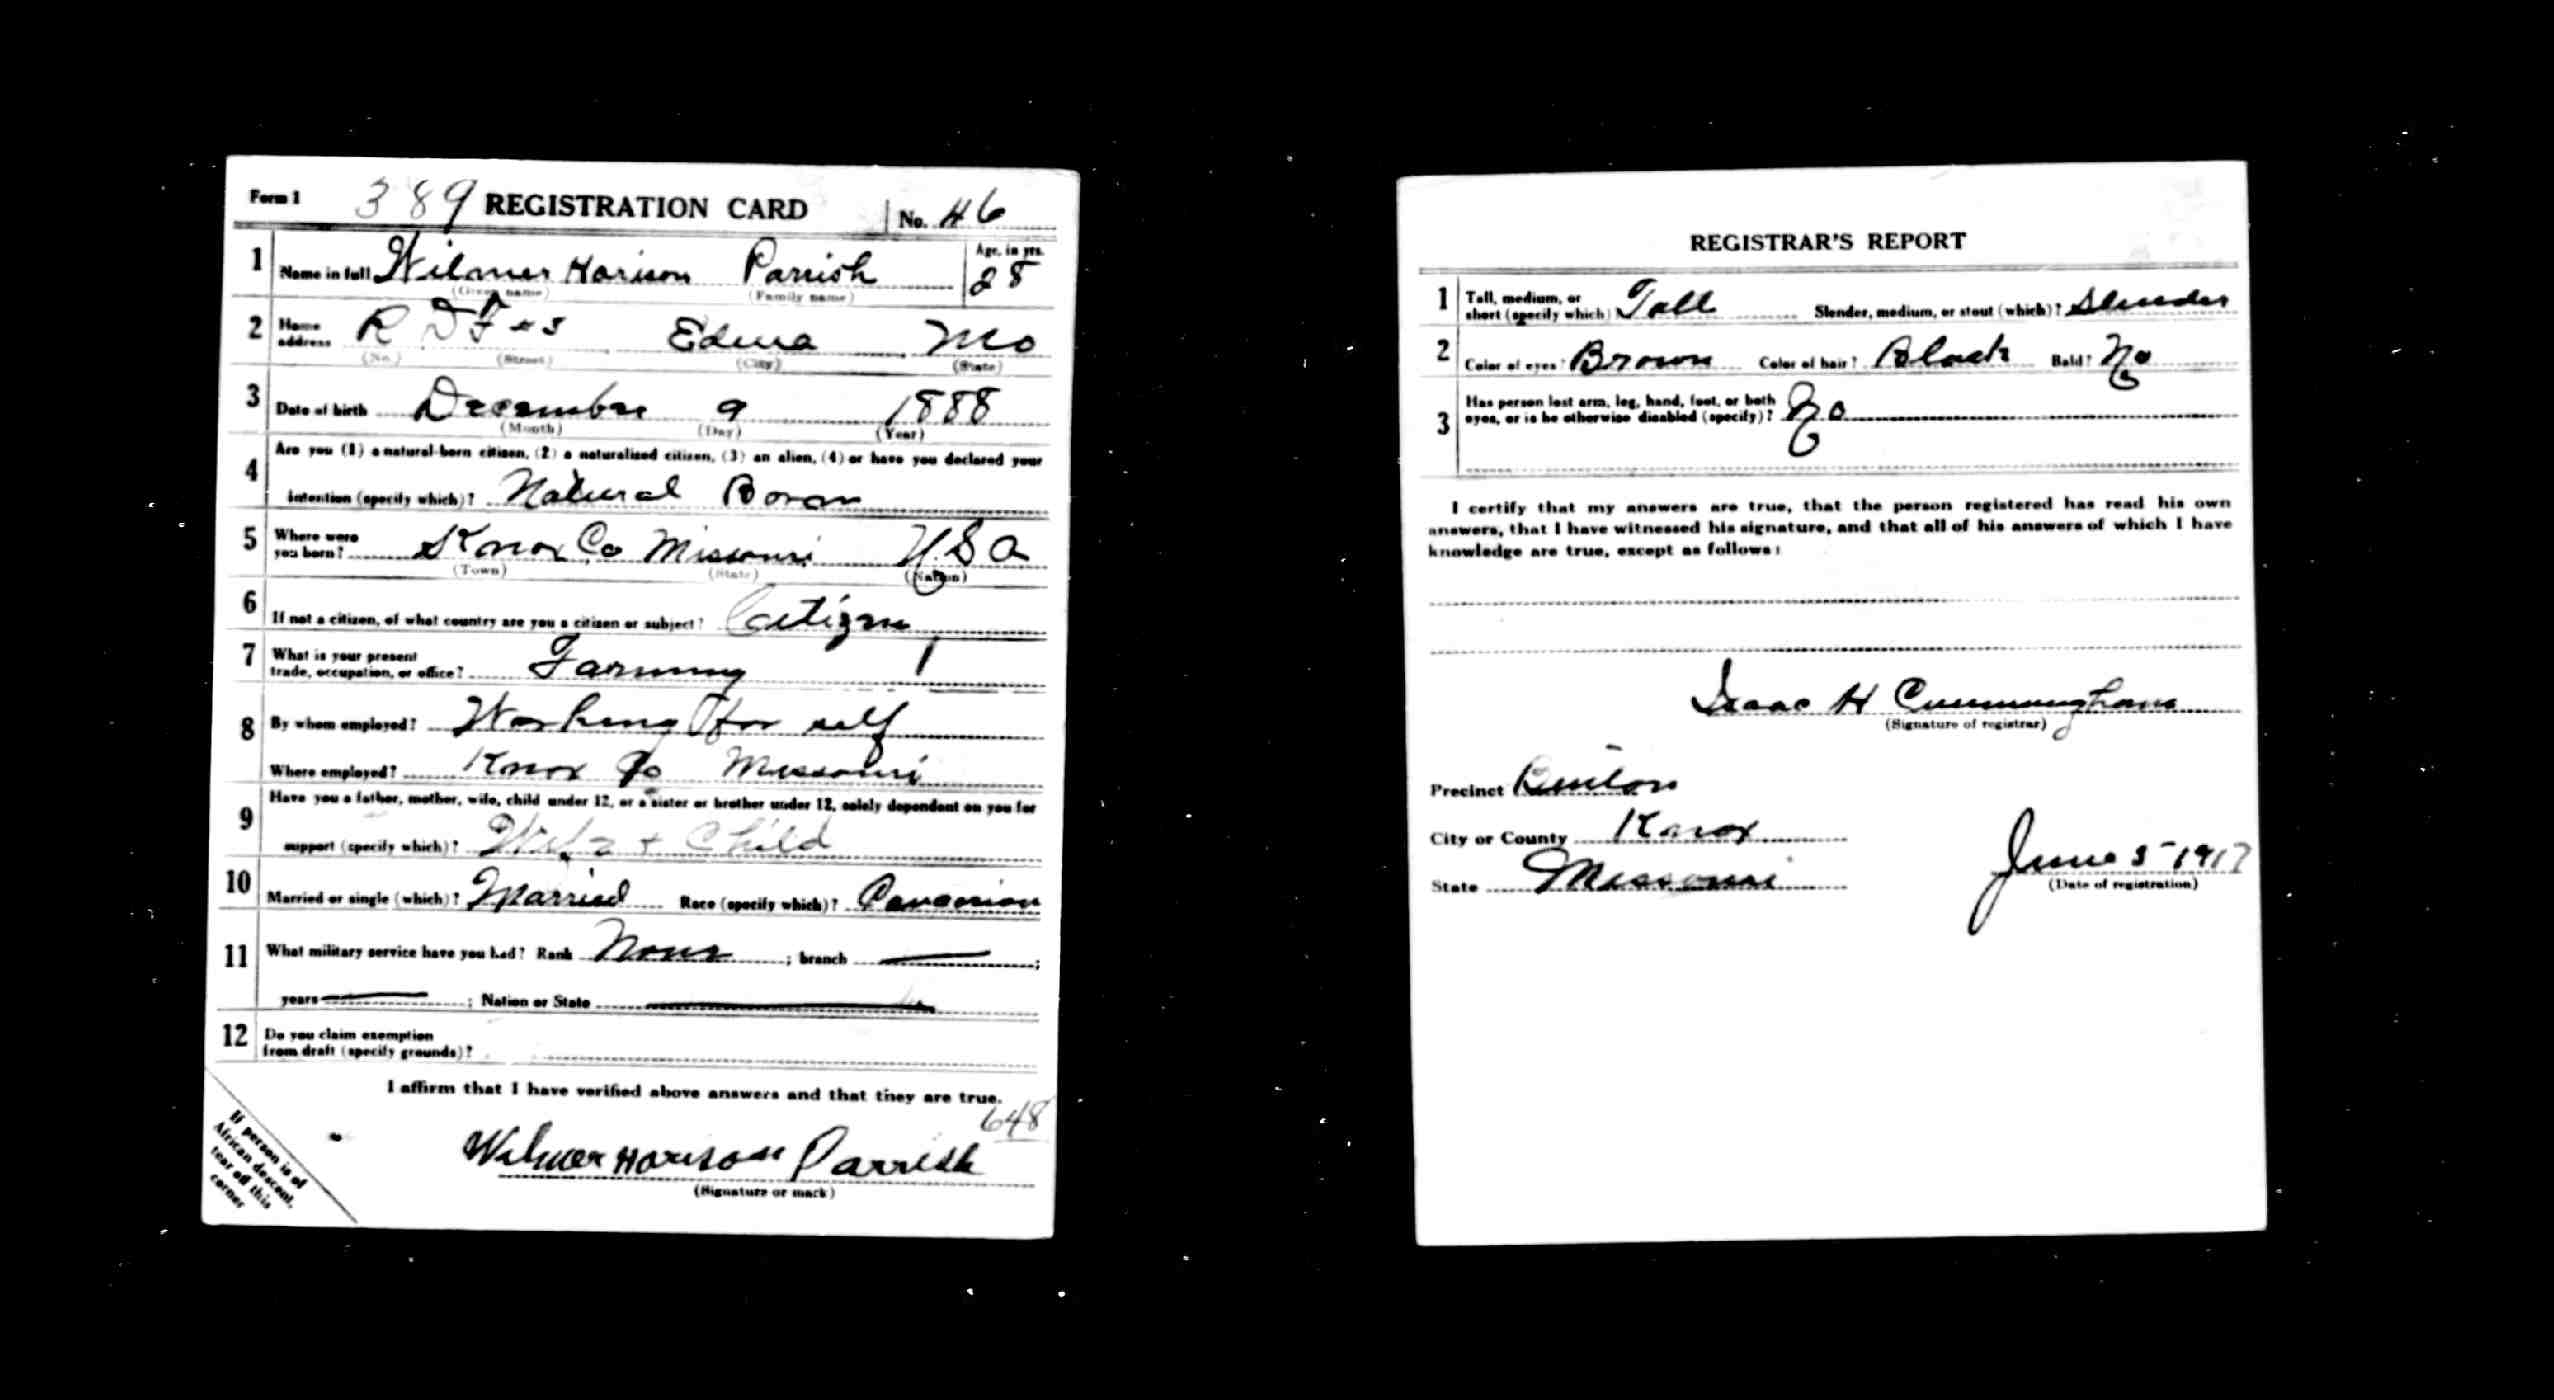 Form 1 389 REGISTRATION CARD No. 46
1 Name in full Wilmer Harison Parrish Age, in yrs. 28
(Given name) (Family name)
2 Home address R F D #3 Edina Mo
(No.) (Street) (City) (State)
3 Date of birth December 9 1888
(Month) (Day) (Year)
4 Are you (1) a natural-born citizen, (2) a naturalized citizen, (3) an alien, (4) or have you declared your
intention (specify which)? Natural Born
5 Where were you born? Knox Co Missouri U S A
(Town) (State) (Nation)
6 If not a citizen, of what country are you a citizen or subject? Citizen
7 What is your present trade, occupation, or office? Farming 1
8 By whom employed? Working for self
Where employed? Knox Co Missouri
9 Have you a father, mother, wife, child under 12, or a sister or brother under 12, solely dependent on you for
support (specify which)? Wife + Child
10 Married or single (which)? Married Race (specify which)? Caucasian
11 What military service have you had? Rank None ; branch ;
years ; Nation or State
12 Do you claim exemption
from draft (specify grounds)?
I affirm that I have verified above answers and that they are true.
648
Wilmer Harison Parrish
(Signature or mark)
If person is of
African descent,
tear off this
corner
REGISTRAR'S REPORT
1 Tall, medium, or
short (specify which)? Tall Slender, medium, or stout (which)? Slender
2 Color of eyes? Brown Color of hair? Black Bald? No
3 Has person lost arm, leg, hand, foot, or both
eyes, or is he otherwise disabled (specify)? No
I certify that my answers are true, that the person registered has read his own
answers, that I have witnessed his signature, and that all of his answers of which I have
knowledge are true, except as follows:
Isaac H Cunningham
(Signature of registrar)
Precinct Benton
City or County Knox
State Missouri
June 5-1917
(Date of registration)